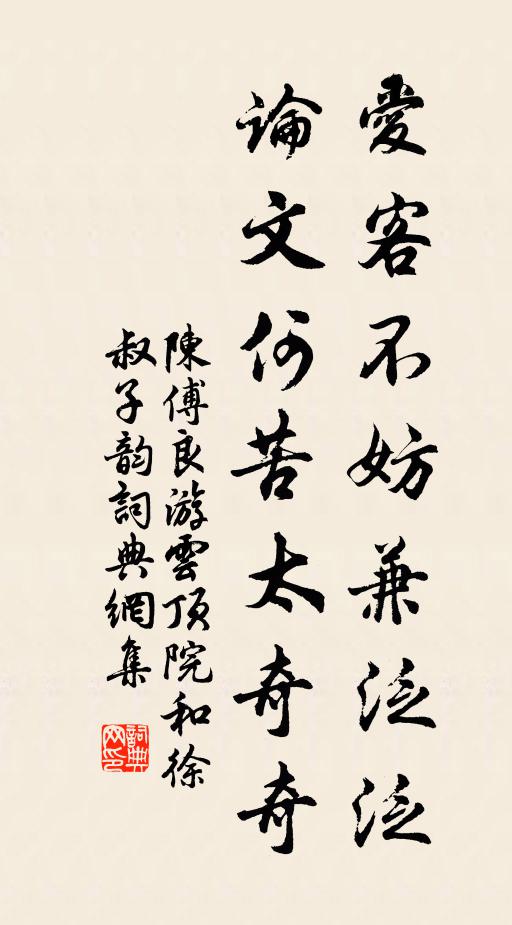 愛客不妨兼泛泛
論文何苦太奇奇
陳傅良游雲頂院和徐
叔子韵詞典網集
詞典网印